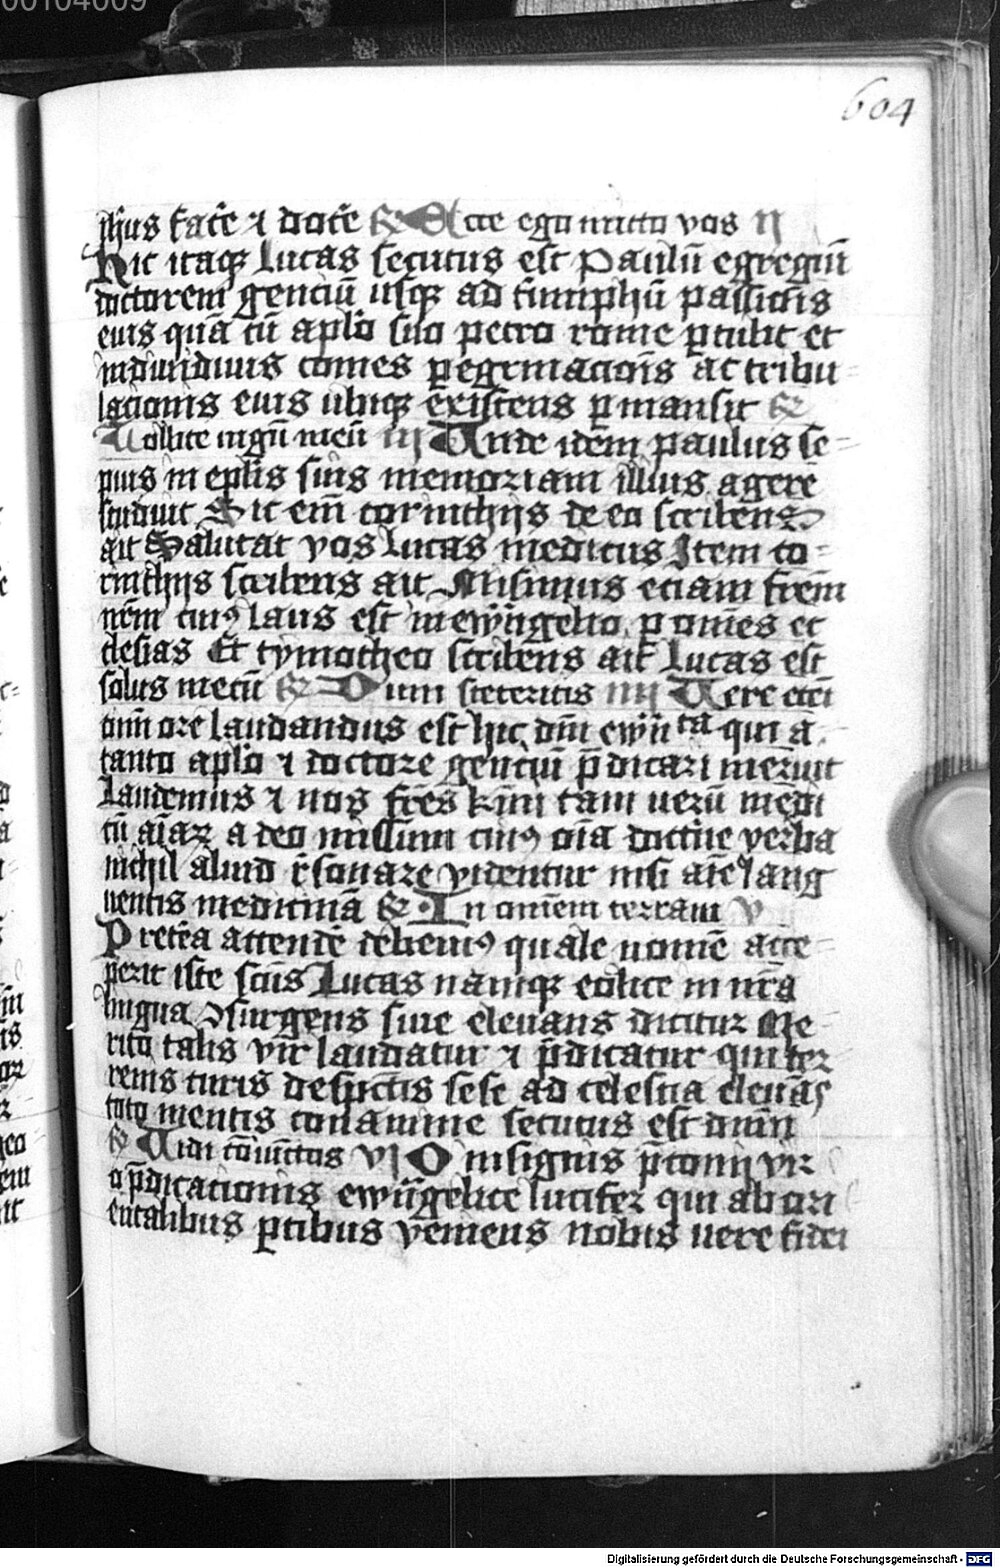 00104009
604
ih̄us fac̄e ⁊ doc̄e R̄ Ecce ego mitto vos II
Hic itaqꝫ Lucas secutus est Paulū egregiū
doctorem genciū usqꝫ ad t͛iumphū passiōis
eius quā cū apl̄o suo petro rome ꝑtulit et
individuus comes ꝑegrinacion̄is ac tribu-
lacionis eius ubiqꝫ existens ꝑmansit R̄
Tollite iugū meū III Unde idem paulus se-
pius in epl̄is suis memoriam illius agere
studuit Sic em̄ corinthijs de eo scribens
ait Salutat vos Lucas medicus Item co-
rinthijs scribens ait Misimus etiam frēm
nr̄m cuiꝰ laus est in ewāngelio ꝑ om̄es ec
clesias Et tymotheo scribens ait Lucas est
solus mecū R̄ Dum steteritis IIII Vere eteī
om̄i ore laudandus est hic dn̄i ewāḡta qui a
tanto apl̄o ⁊ doctore genciū p̄dicari meruit
Laudemus ⁊ nos fr̄es k̄mi tam uerū medi
cū aīaꝝ a deo missum cuiꝰ oīa doctͥne verba
nichil aliud r̄sonare videntur nisi aīe lang
uentis medicinā R̄ In omnem terram V
Pret̄ea attendē debemꝰ quale nomē acce-
perit iste sc̄us Lucas namqꝫ eolice in nr̄a
lingua ꝯsurgens siue elevans dicitur Me-
rito talis vir laudatur ⁊ p̄dicatur qui ter
renis curis despectis sese ad celestia elevās
toto mentis conamine secutus est dominū
R̄ Vidi cōiunctos VI O insignis p̄conij vir
o p̄dicacionis ewāngelice lucifer qui ab ori
entalibus ꝑtibus veniens nobis uere fidei
Digitalisierung gefördert durch die Deutsche Forschungsgemeinschaft - DFG